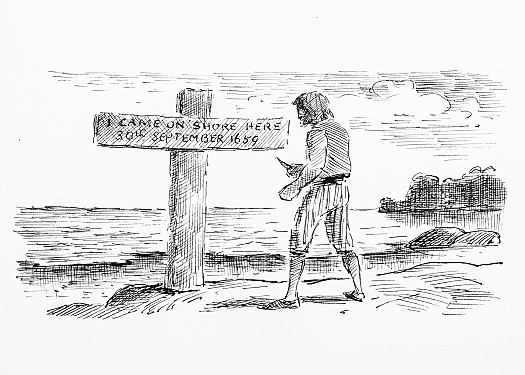 I CAME ON SHORE HERE
30TH SEPTEMBER 1659